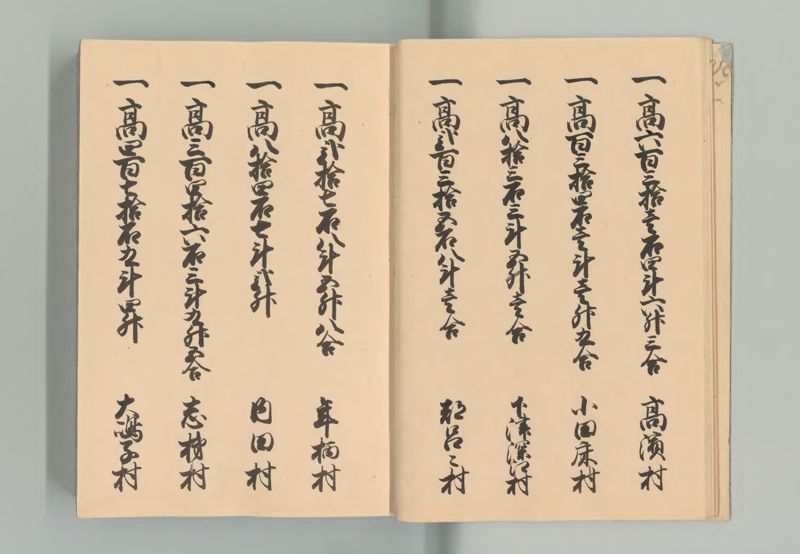 一高六百三拾壱石四斗六升三合 高濱村
一高百三拾四石壱斗壱升九合 小田床村
一高八拾三石三斗五升壱合 下津深江村
一高弐百三拾五石八斗壱合 都呂々村
一高弐拾七石八斗五升八合 年柄村
一高八拾四石七斗弐升 内田村
一高三百四拾六石三斗九升五合 志柿村
一高四百七拾石九斗四升 大嶋子村